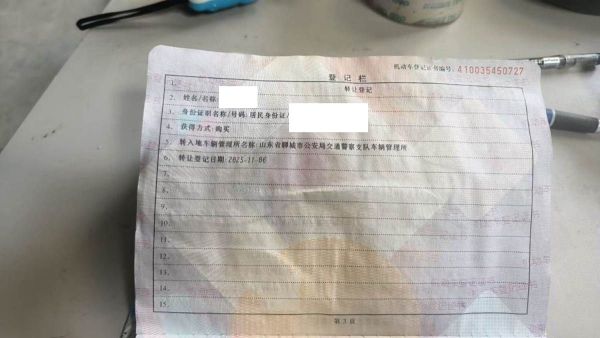 机动车登记证书编号: 410035450727
登记栏
1. 转让登记
2. 姓名/名称:
3. 身份证明名称/号码:居民身份证/
4. 获得方式:购买
5. 转入地车辆管理所名称:山东省聊城市公安局交通警察支队车辆管理所
6. 转让登记日期:2025-11-06
7.
8.
9.
10.
11.
12.
13.
14.
15.
第 3 页